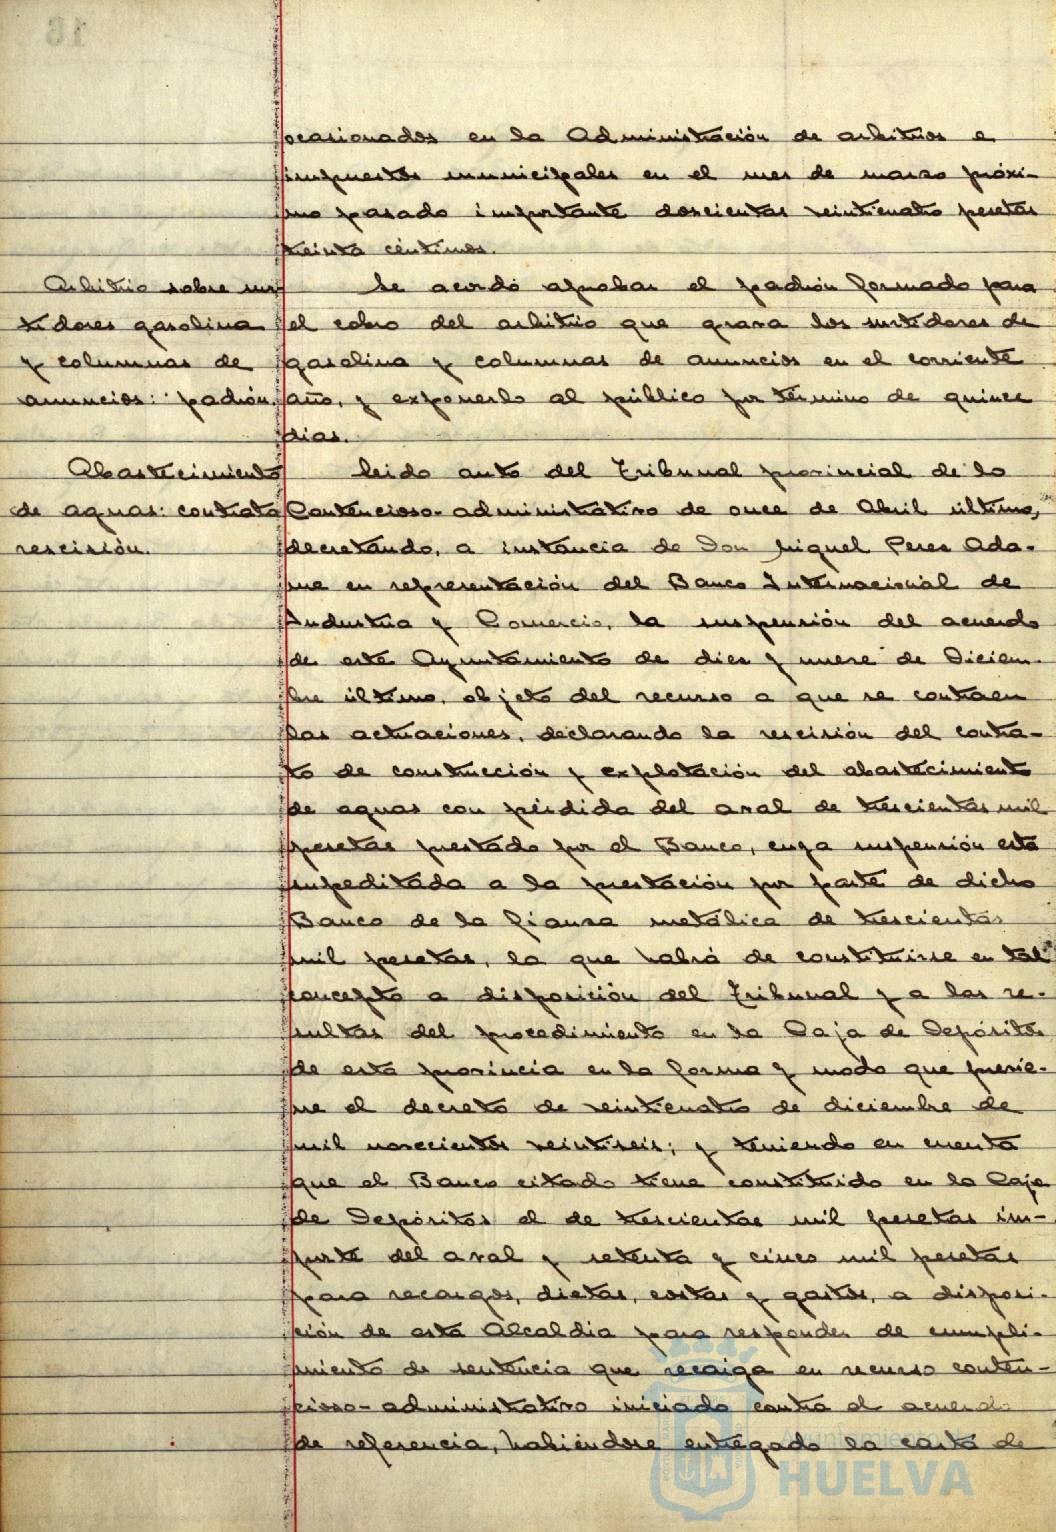 ocasionados en la Administración de arbitrios e
impuestos municipales en el mes de marzo próxi-
mo pasado importante doscientas veinticuatro pesetas
treinta céntimos.
Arbitrio sobre sur-
tidores gasolina
y columnas de
anuncios: padrón.
Se acordó aprobar el padrón formado para
el cobro del arbitrio que grava los surtidores de
gasolina y columnas de anuncios en el corriente
año, y exponerlo al público por término de quince
dias.
Abastecimiento
de aguas: contrata
rescisión.
Leido auto del Tribunal provincial de lo
Contencioso-administrativo de once de Abril último,
decretando, a instancia de Don Miguel Perez Ada-
me en representación del Banco Internacional de
Industria y Comercio, la suspensión del acuerdo
de este Ayuntamiento de diez y nueve de Diciem-
bre último, objeto del recurso a que se contraen
las actuaciones, declarando la rescisión del contra-
to de construcción y explotación del abastecimiento
de aguas con pérdida del aval de trescientas mil
pesetas prestado por el Banco, cuya suspensión está
supeditada a la prestación por parte de dicho
Banco de la fianza metálica de trescientas
mil pesetas, la que habrá de constituirse en tal
concepto a disposición del Tribunal y a las re-
sultas del procedimiento en la Caja de Depósitos
de esta provincia en la forma y modo que previe-
ne el decreto de veinticuatro de diciembre de
mil novecientos veintiseis; y teniendo en cuenta
que el Banco citado tiene constituido en la Caja
de Depósitos el de trescientas mil pesetas im-
porte del aval y setenta y cinco mil pesetas
para recargos, dietas, costas y gastos, a disposi-
ción de esta Alcaldia para responder de cumpli-
miento de sentencia que recaiga en recurso conten-
cioso-administrativo iniciado contra el acuerdo
de referencia, habiéndose entregado la carta de
Ayuntamiento de
HUELVA